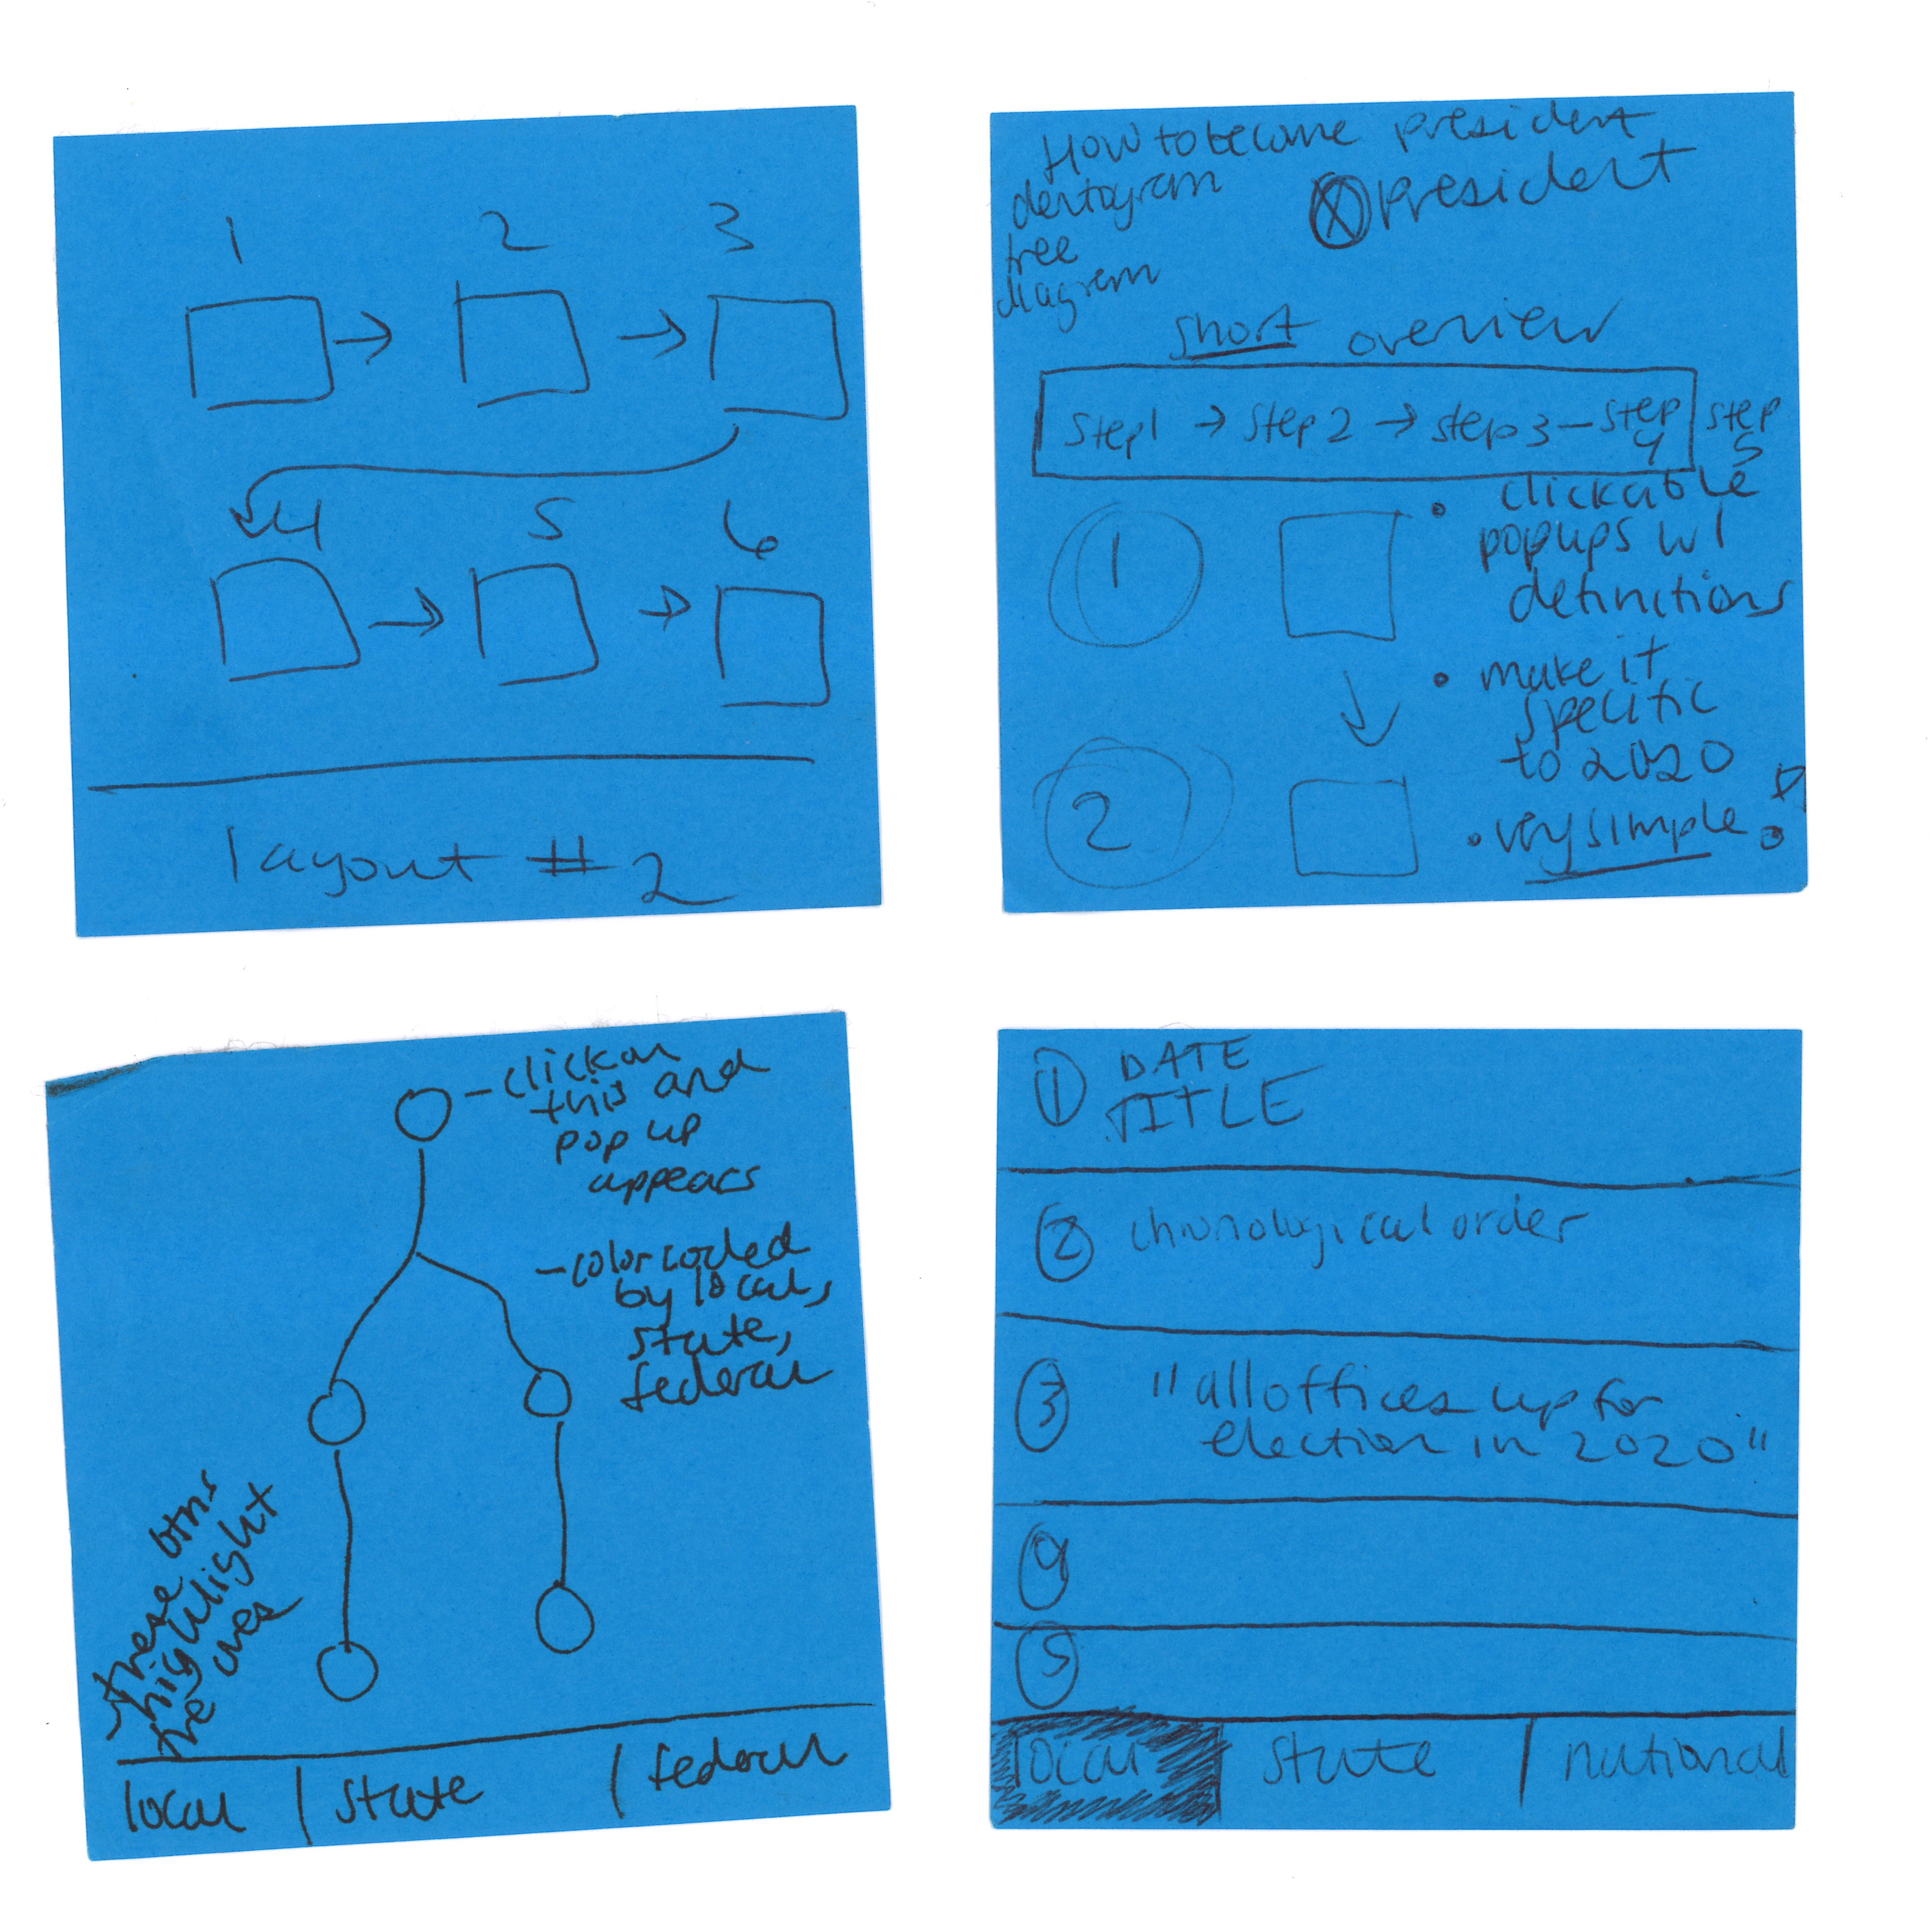 1 2 3
4 5 6
layout #2
How to become president
dentogram
tree
diagram
president
short overview
step 1 → step 2 → step 3 – step 4 step 5
1
2
• clickable
popups w/
definitions
• make it
specific
to 2020
• very simple
– click on
this and
pop up
appears
– color coded
by local,
state,
federal
these btns
highlight
the ones
local | state | federal
1 DATE
TITLE
2 chronological order
3 "all offices up for
election in 2020"
4
5
local state | national